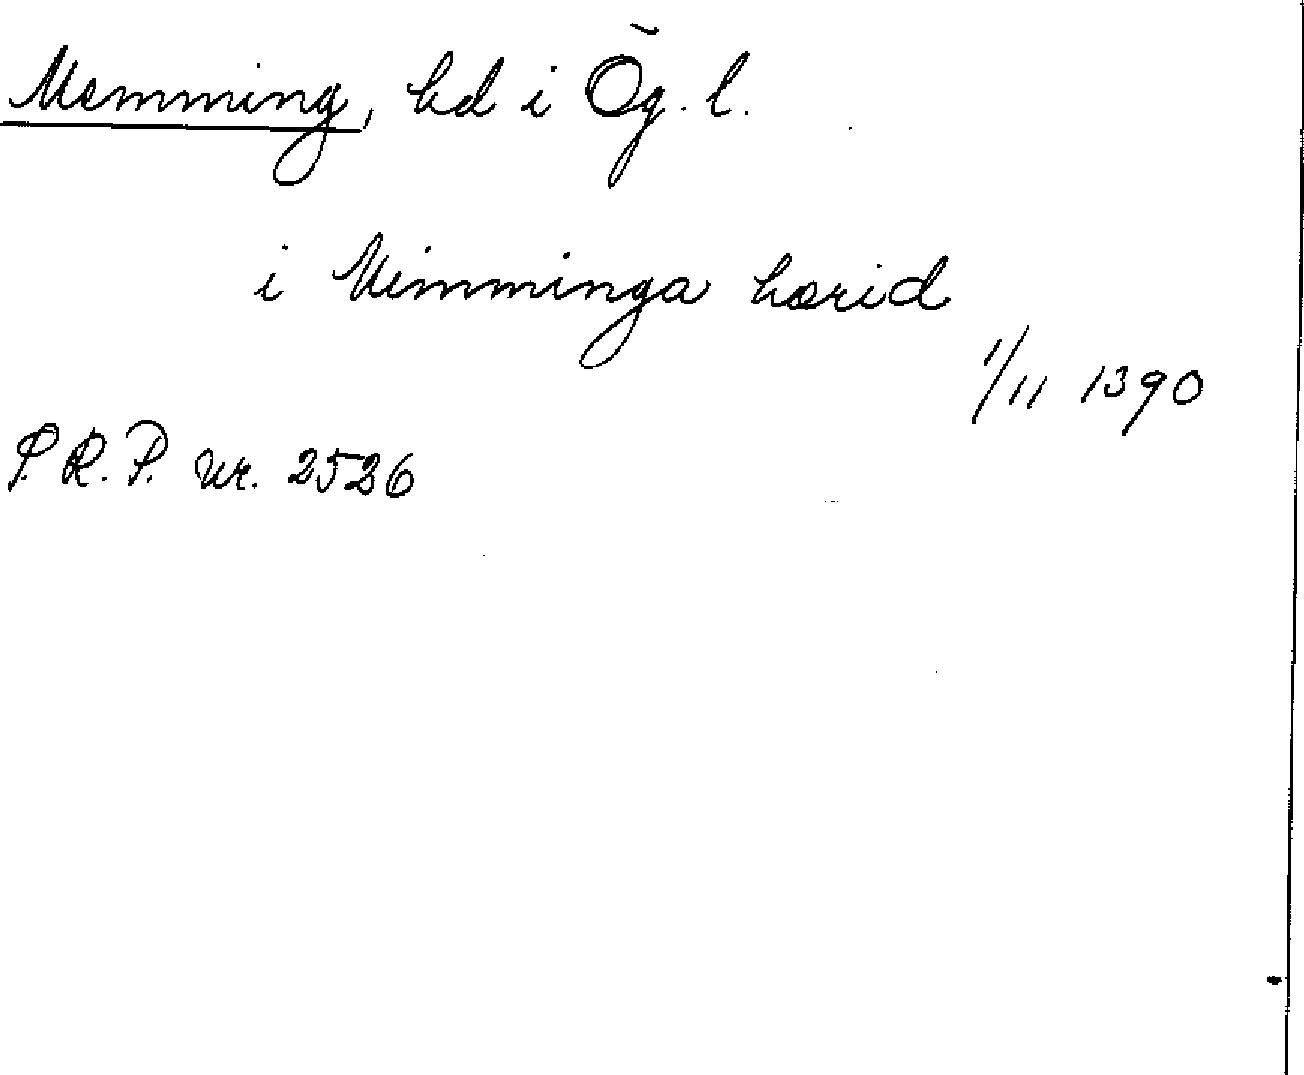 Memming, hd i Ög. l.
i Mimminga hærid
1/11 1390
P.R.P. nr. 2526